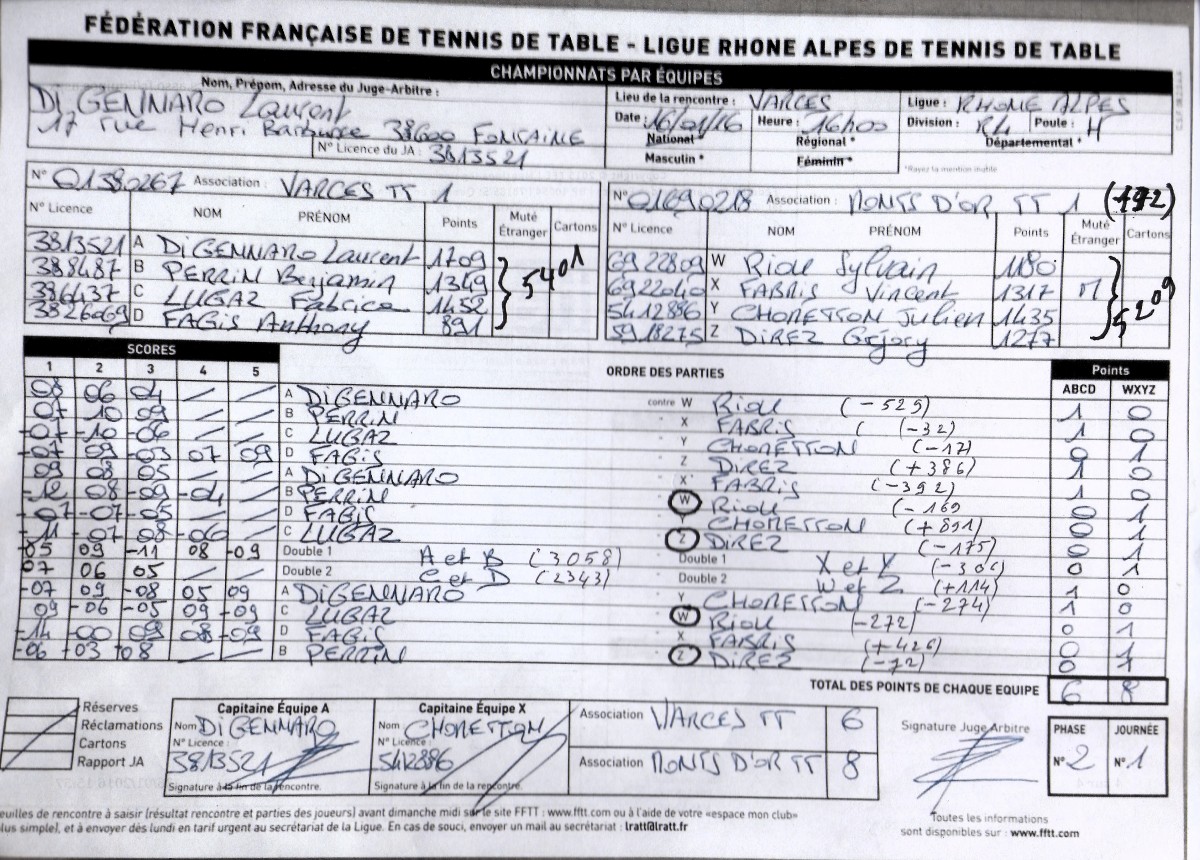 FÉDÉRATION FRANÇAISE DE TENNIS DE TABLE - LIGUE RHONE ALPES DE TENNIS DE TABLE
CHAMPIONNATS PAR ÉQUIPES
Nom, Prénom, Adresse du Juge-Arbitre :
Di GENNARO Laurent
17 rue Henri Barbusse 38600 FONTAINE
N° Licence du JA : 3813521
Lieu de la rencontre : VARCES
Date : 16/01/16 Heure : 16h00
National * Régional *
Masculin * Féminin *
Ligue : RHONE ALPES
Division : R4 Poule : H
Départemental *
*Rayez la mention inutile
N° 01380267 Association : VARCES TT 1
N° Licence NOM PRÉNOM Points Muté Étranger Cartons
3813521 A Di GENNARO Laurent 1709
388487 B PERRIN Benjamin 1349
386437 C LUGAZ Fabrice 1452
3826069 D FAGIS Anthony 891
5401
N° 01690218 Association : MONTS D'OR TT 1 (-192)
N° Licence NOM PRÉNOM Points Muté Étranger Cartons
6922809 W RIOU Sylvain 1180
6922040 X FABRIS Vincent 1317 M
5412886 Y CHORETTON Julien 1435
5918275 Z DIREZ Gréjory 1277
5209
SCORES
1 2 3 4 5
ORDRE DES PARTIES
Points
ABCD WXYZ
08 06 04 / / A DiGENNARO contre W RIOU (-529) 1 0
07 10 09 / / B PERRIN X FABRIS (-32) 1 0
-07 -10 -06 / / C LUGAZ Y CHORETTON (-17) 0 1
-07 09 -03 07 09 D FAGIS Z DIREZ (+386) 1 0
09 08 05 / / A DiGENNARO X FABRIS (-392) 1 0
-12 08 -09 -04 / B PERRIN W RIOU (-169 0 1
-07 -07 -05 / / D FAGIS Y CHORETTON (+891) 0 1
-11 -07 08 -06 / C LUGAZ Z DIREZ (-175) 0 1
-05 09 -11 08 -09 Double 1 A et B (3058) Double 1 X et Y (-306) 0 1
07 06 05 / / Double 2 C et D (2343) Double 2 W et Z (+114) 1 0
-07 09 -08 05 09 A DiGENNARO Y CHORETTON (-274) 1 0
09 -06 -05 09 -09 C LUGAZ W RIOU (-272) 0 1
-14 -00 09 08 -09 D FAGIS X FABRIS (+426) 0 1
-06 -03 -08 / / B PERRIN Z DIREZ (-72) 0 1
TOTAL DES POINTS DE CHAQUE EQUIPE 6 8
Réserves
Réclamations
Cartons
Rapport JA
Capitaine Équipe A
Nom DiGENNARO
N° Licence :
3813521
Signature à la fin de la rencontre.
Capitaine Équipe X
Nom CHORETTON
N° Licence :
5412886
Signature à la fin de la rencontre.
Association VARCES TT 6
Association MONTS D'OR TT 8
Signature Juge-Arbitre
PHASE JOURNÉE
N° 2 N° 1
euilles de rencontre à saisir (résultat rencontre et parties des joueurs) avant dimanche midi sur le site FFTT : www.fftt.com ou à l'aide de votre «espace mon club»
lus simple), et à envoyer dès lundi en tarif urgent au secrétariat de la Ligue. En cas de souci, envoyer un mail au secrétariat : lratt@lratt.fr
Toutes les informations
sont disponibles sur : www.fftt.com